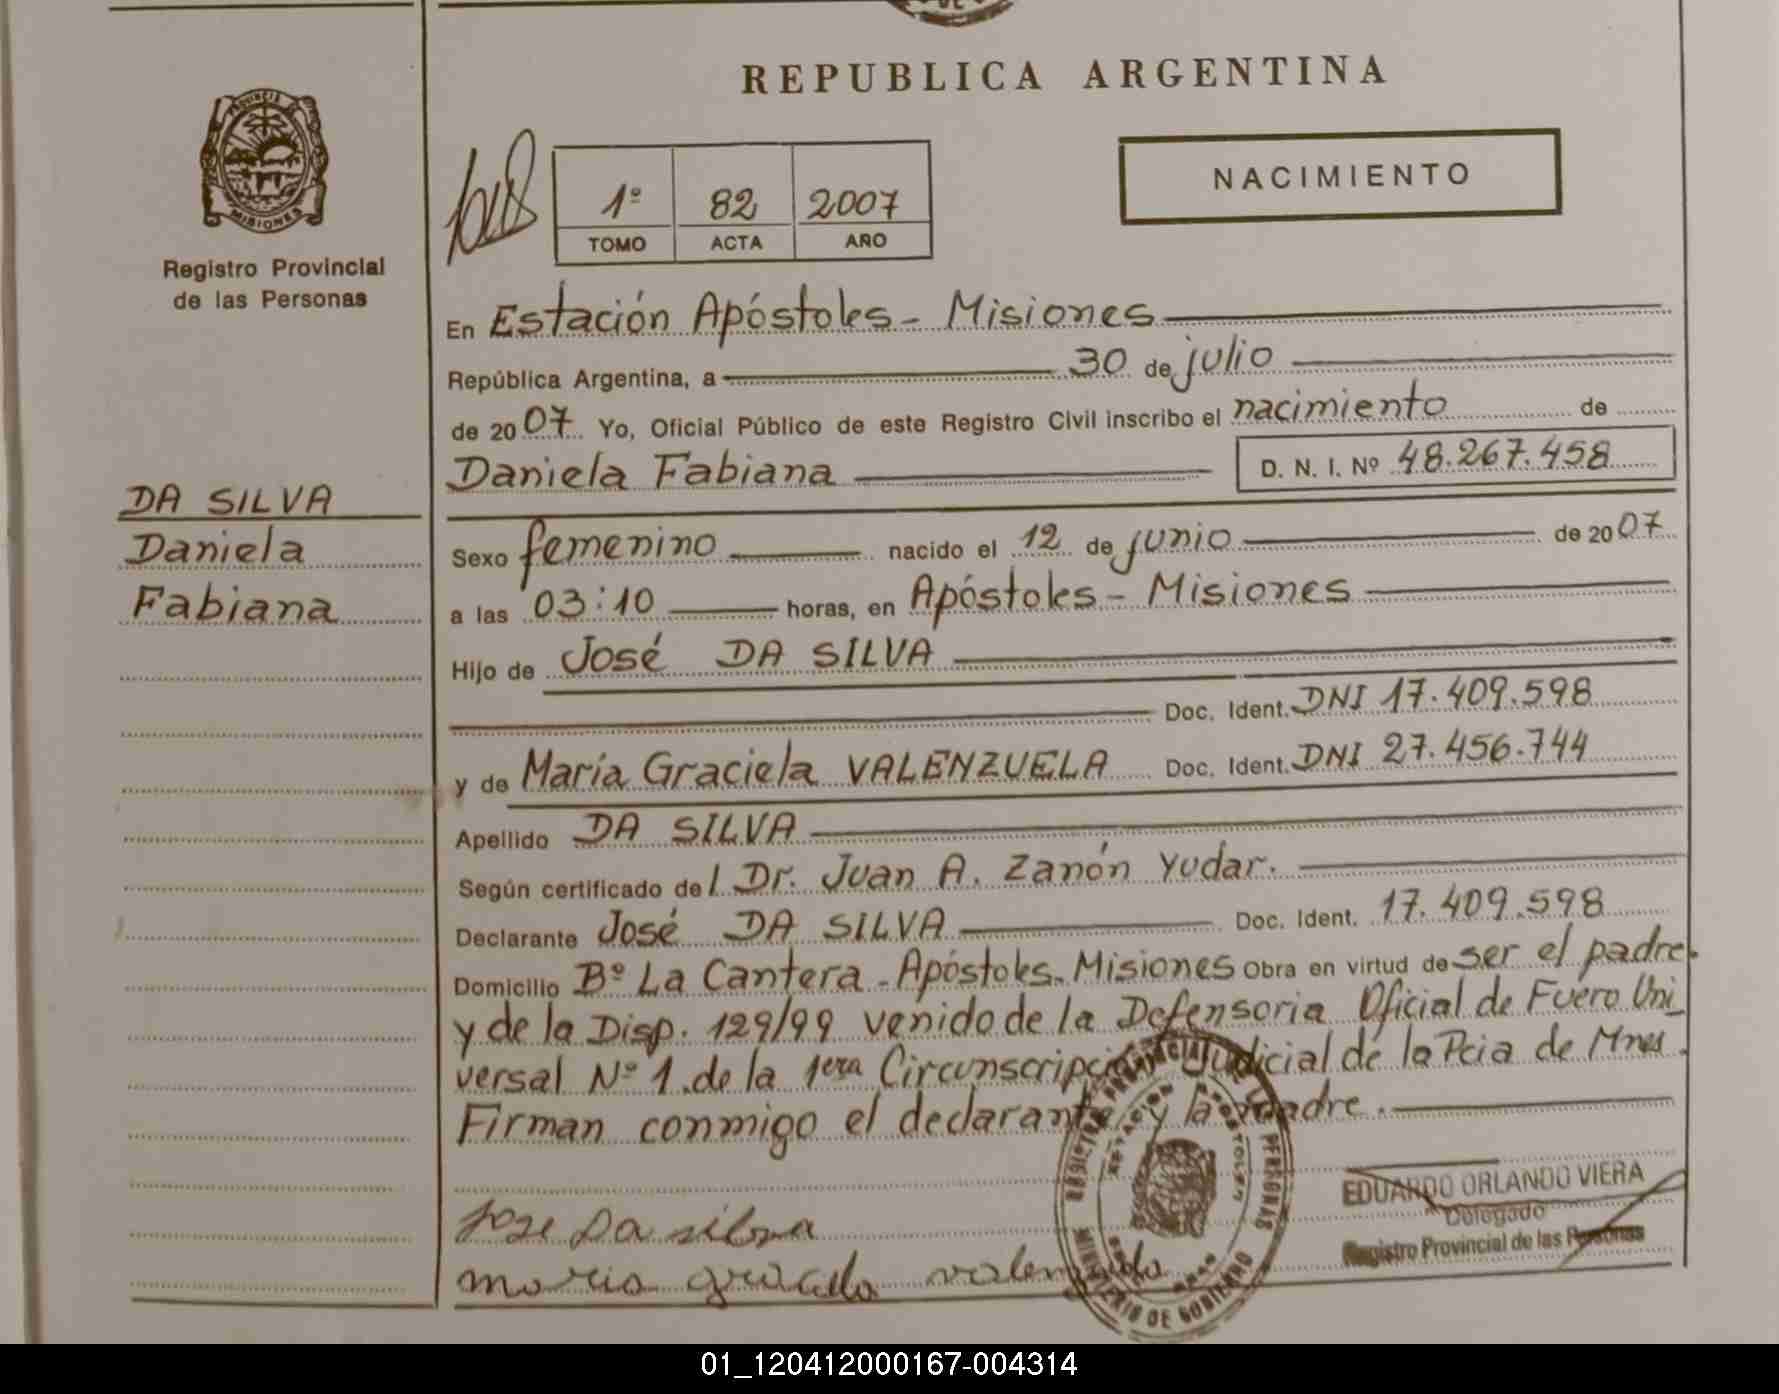 REPUBLICA ARGENTINA
PROVINCIA DE
MISIONES
Registro Provincial
de las Personas
1º 82 2007
TOMO ACTA AÑO
NACIMIENTO
En Estación Apóstoles - Misiones
República Argentina, a 30 de julio
de 2007 Yo, Oficial Público de este Registro Civil inscribo el nacimiento de
Daniela Fabiana D. N. I. Nº 48.267.458
DA SILVA
Daniela
Fabiana
Sexo femenino nacido el 12 de junio de 2007
a las 03:10 horas, en Apóstoles - Misiones
Hijo de José DA SILVA
Doc. Ident. DNI 17.409.598
y de María Graciela VALENZUELA Doc. Ident. DNI 27.456.744
Apellido DA SILVA
Según certificado del Dr. Juan A. Zanón Yudar.
Declarante José DA SILVA Doc. Ident. 17.409.598
Domicilio Bº La Cantera - Apóstoles - Misiones Obra en virtud de ser el padre
y de la Disp. 129/99 venido de la Defensoria Oficial de Fuero Uni_
versal Nº 1 de la 1era Circunscripción Judicial de la Pcia de Mnes.
Firman conmigo el declarante y la madre.
Jose Da silva
maria graciela valenzuela
EDUARDO ORLANDO VIERA
Delegado
Registro Provincial de las Personas
REGISTRO PROVINCIAL DE LAS PERSONAS
ESTACION APOSTOLES
MINISTERIO DE GOBIERNO
01_120412000167-004314